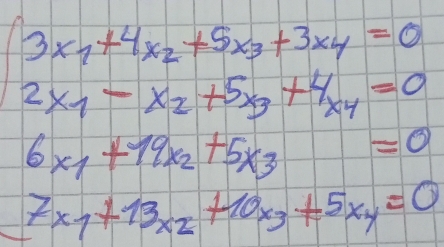 3x₁+4x₂+5x₃+3x₄=0
2x₁-x₂+5x₃+4x₄=0
6x₁+19x₂+5x₃=0
7x₁+13x₂+10x₃+5x₄=0